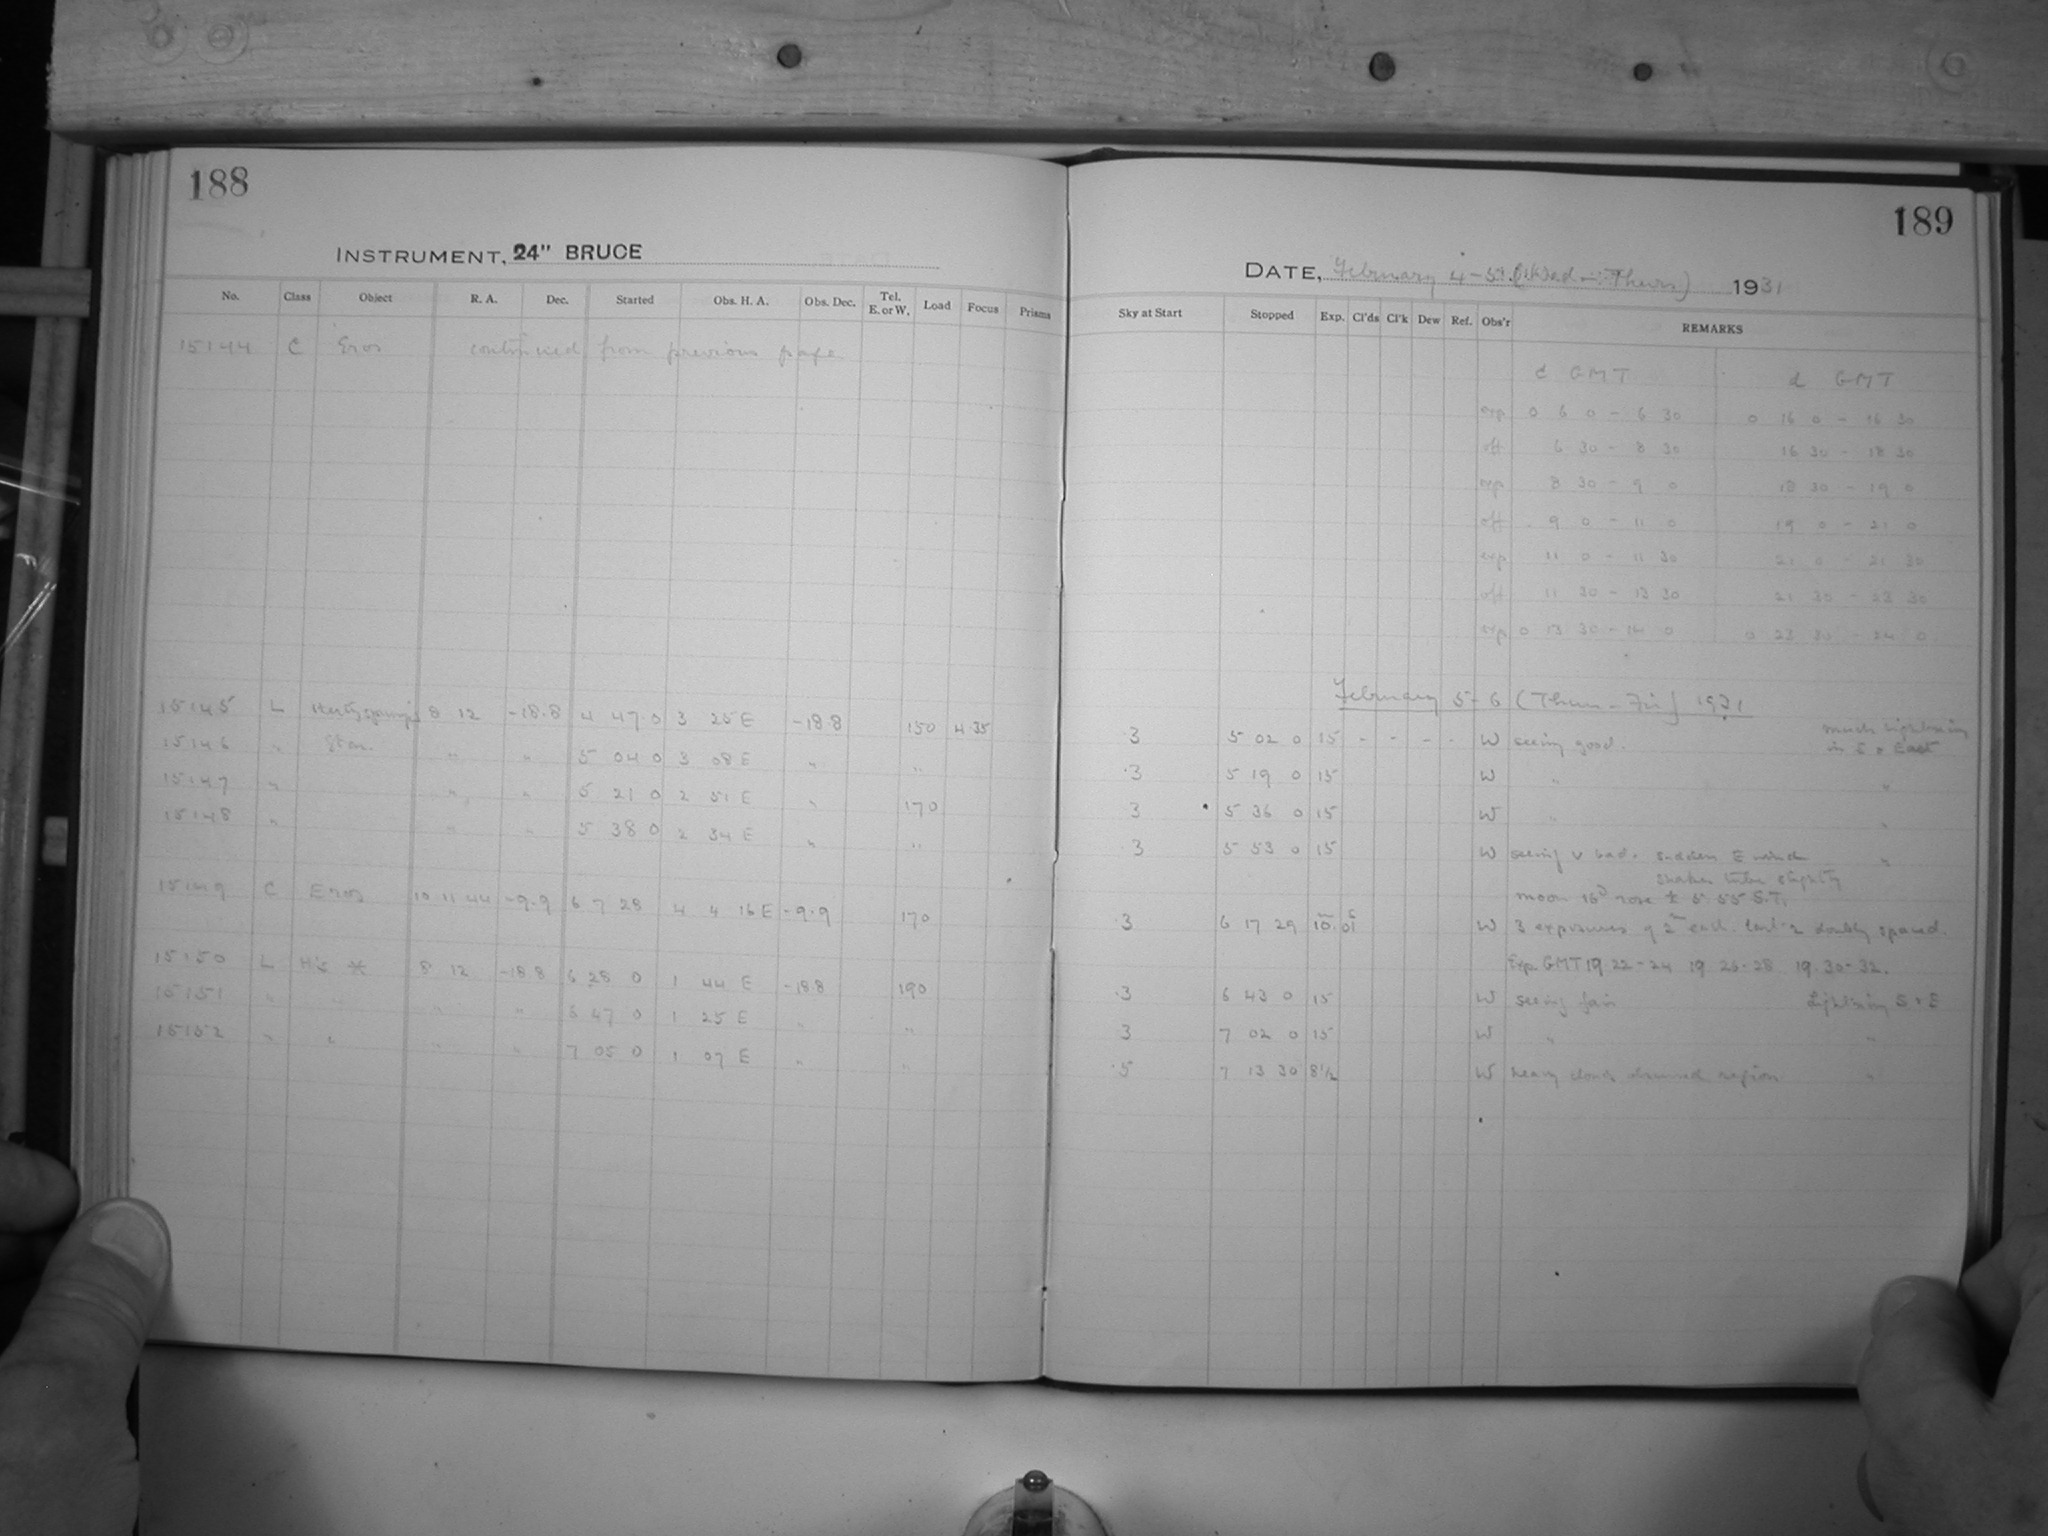 188
INSTRUMENT, 24" BRUCE
No. Class Object R. A. Dec. Started Obs. H. A. Obs. Dec. Tel. E. or W. Load Focus Prisms
15144 C Eros continued from previous page
15145 L 8 12 -18.8 4 47 0 3 25 E -18.8 150 4.35
15146 " Star " " 5 04 0 3 08 E " "
15147 " " " 5 21 0 2 51 E " 170
15148 " " " 5 38 0 2 34 E " "
15149 C Eros 10 11 44 -9.9 6 7 28 4 4 16 E -9.9 170
15150 L H's * 8 12 -18.8 6 28 0 1 44 E -18.8 190
15151 " " " " 6 47 0 1 25 E " "
15152 " " " " 7 05 0 1 07 E " "
189
DATE, February 4-5 (Wed - Thurs) 1931
Sky at Start Stopped Exp. Cl'ds Cl'k Dew Ref. Obs'r REMARKS
c GMT d GMT
exp 0 6 0 - 6 30 0 16 0 - 16 30
off 6 30 - 8 30 16 30 - 18 30
exp 8 30 - 9 0 18 30 - 19 0
off 9 0 - 11 0 19 0 - 21 0
exp 11 0 - 11 30 21 0 - 21 30
off 11 30 - 13 30 21 30 - 23 30
exp 0 13 30 - 14 0 0 23 30 - 24 0
February 5-6 (Thurs - Fri) 1931
.3 5 02 0 15 - - - - W seeing good. much lightning in S & East
.3 5 19 0 15 W " "
.3 5 36 0 15 W " "
.3 5 53 0 15 W seeing v bad. sudden E wind "
shakes tube slightly
moon 16d rose 5 55 S.T.
.3 6 17 29 10m 01s W 3 exposures of 2m each. last 2 doubly spaced.
Exp. GMT 19.22-24 19 26-28 19.30-32.
.3 6 43 0 15 W seeing fair Lightning S & E
.3 7 02 0 15 W " "
.5 7 13 30 8½ W heavy clouds obscured region "